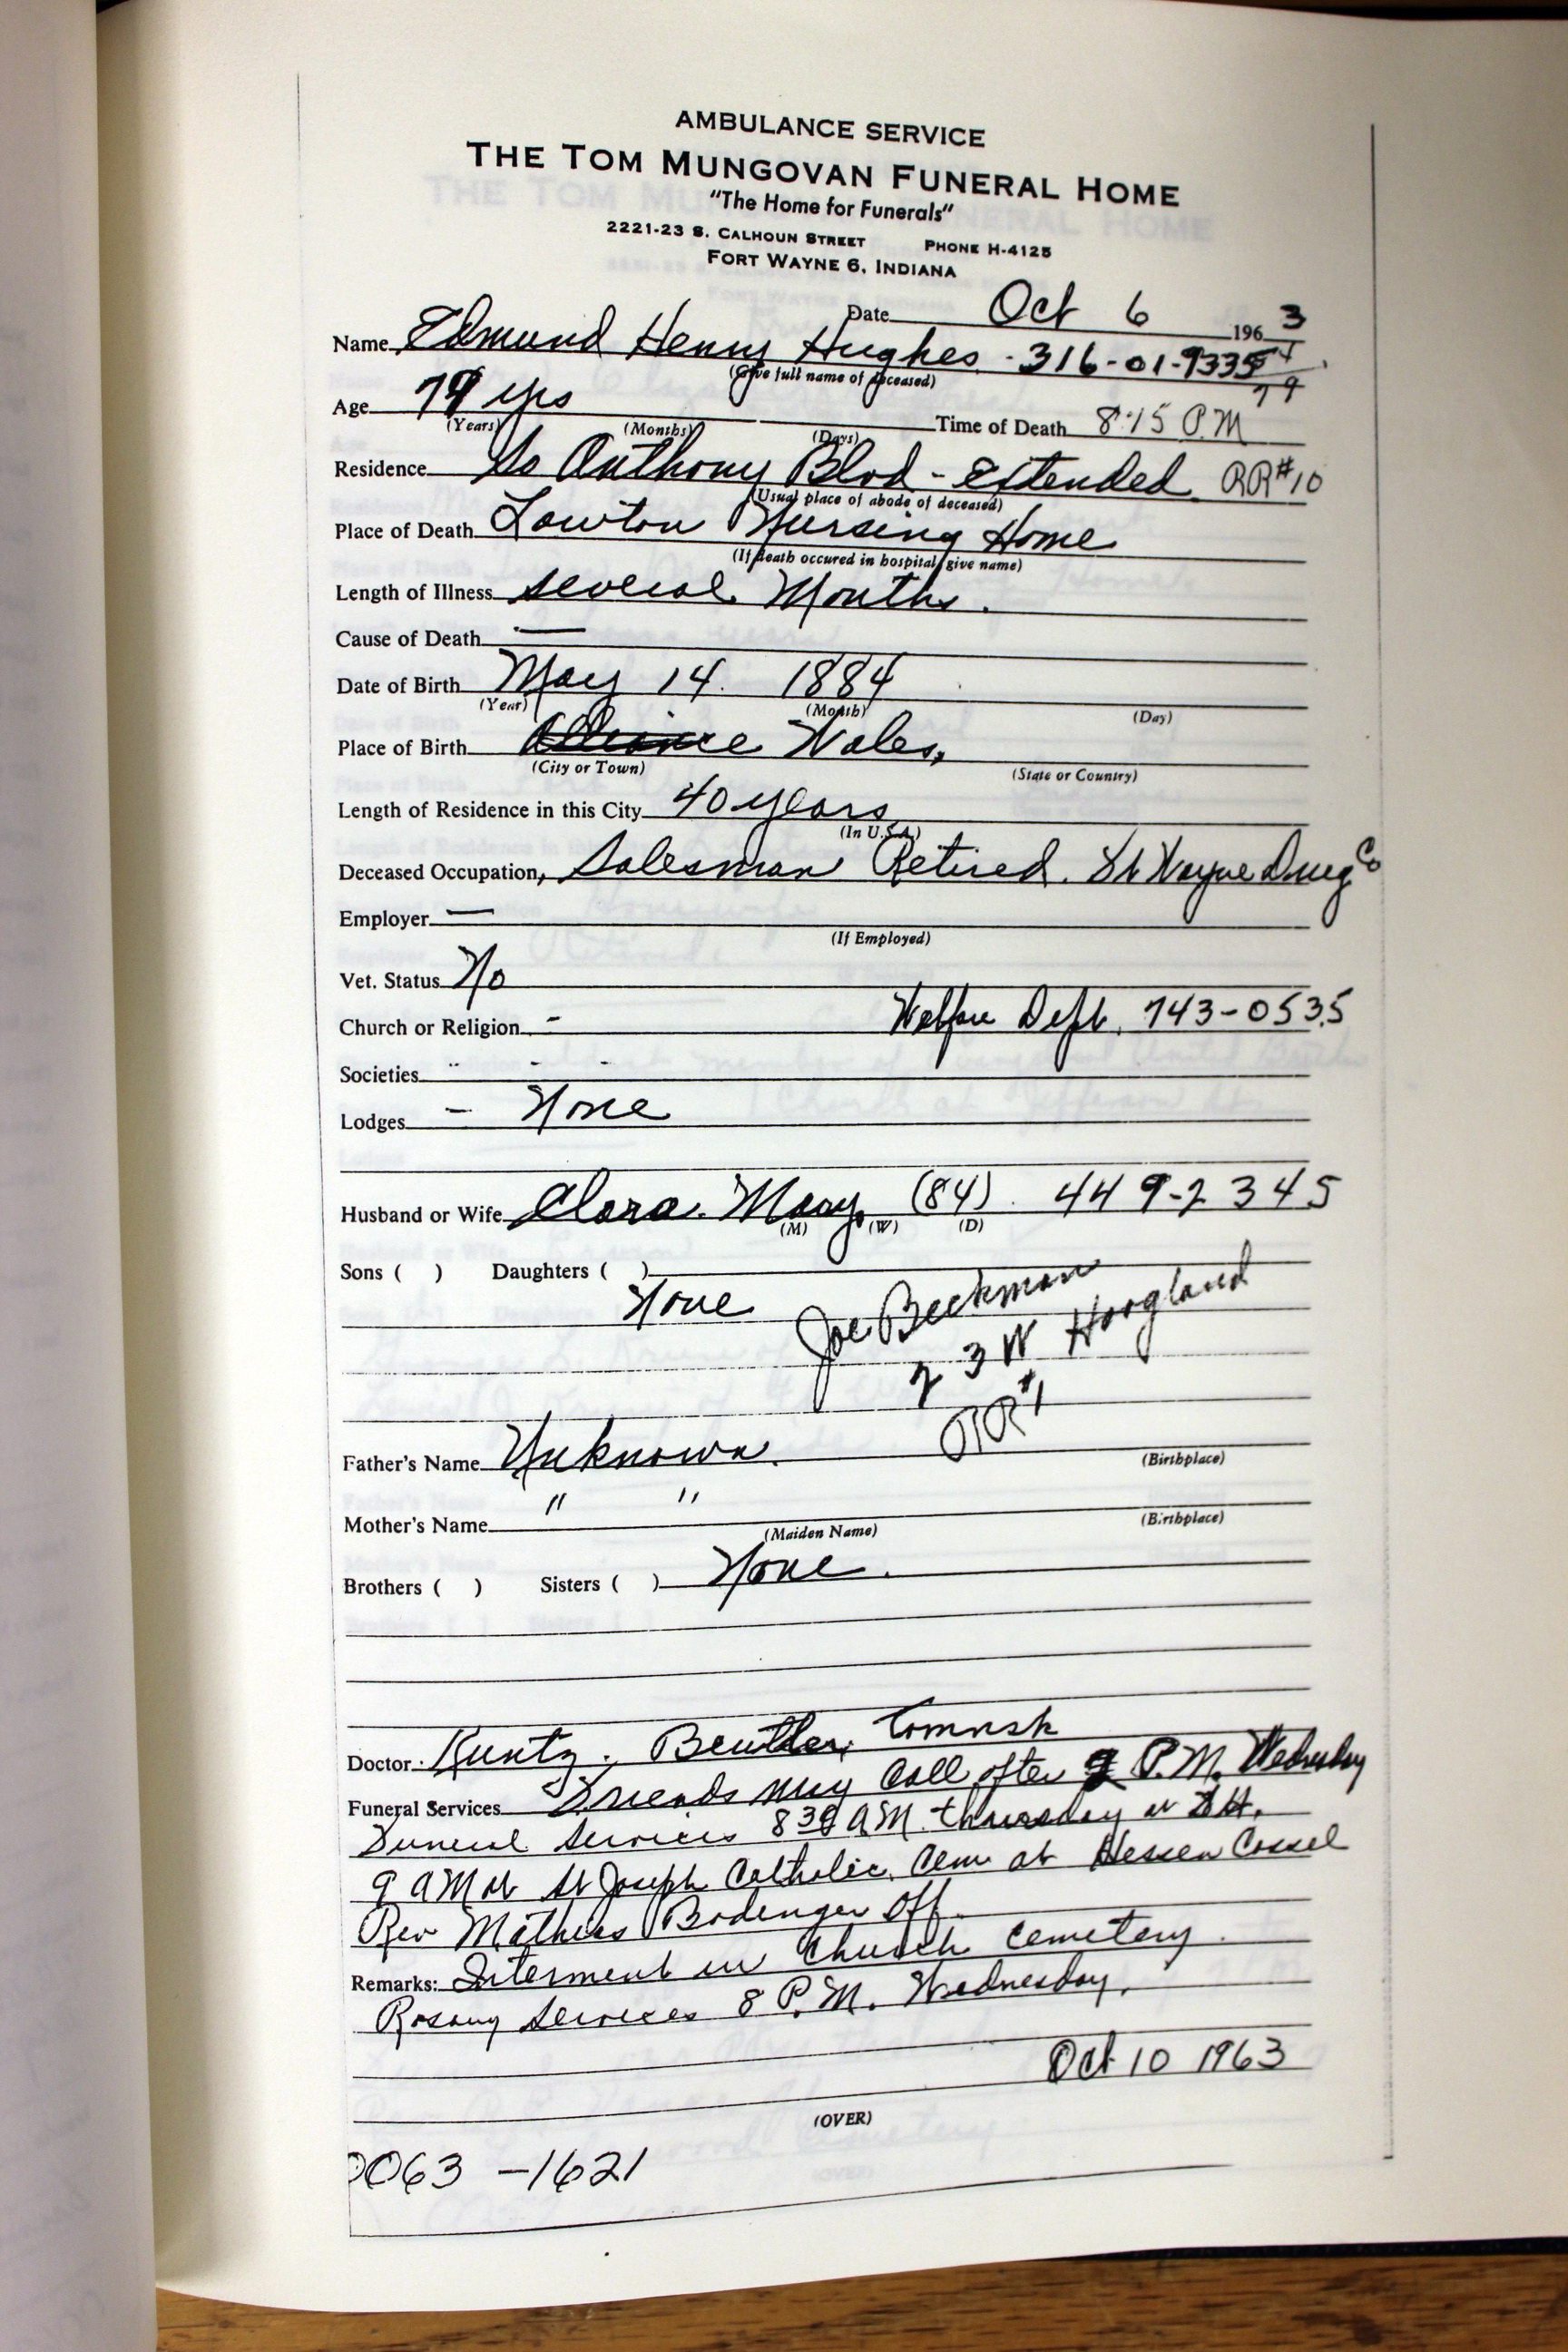 AMBULANCE SERVICE
THE TOM MUNGOVAN FUNERAL HOME
"The Home for Funerals"
2221-23 S. CALHOUN STREET PHONE H-4125
FORT WAYNE 6, INDIANA
Date Oct 6 1963
Name Edmund Henry Hughes - 316-01-9335
(Give full name of deceased)
79
Age 79 yrs Time of Death 8:15 P.M
(Years) (Months) (Days)
Residence So Anthony Blvd - Extended RR#10
(Usual place of abode of deceased)
Place of Death Lawton Nursing Home
(If death occured in hospital, give name)
Length of Illness several Months.
Cause of Death —
Date of Birth May 14. 1884
(Year) (Month) (Day)
Place of Birth Alliance Wales,
(City or Town) (State or Country)
Length of Residence in this City 40 years
(In U.S.A.)
Deceased Occupation, Salesman Retired. Ft Wayne Drug Co
Employer —
(If Employed)
Vet. Status No
Church or Religion - Welfare Dept. 743-0535
Societies - -
Lodges - None
Husband or Wife Clara. May. (84). 449-2345
(M) (W) (D)
Sons ( ) Daughters ( )
None
Joe Beckman
23 W Hoogland
RR#1
Father's Name Unknown.
(Birthplace)
Mother's Name " "
(Maiden Name) (Birthplace)
Brothers ( ) Sisters ( ) None.
Doctor. Kuntz. Beutler,
Funeral Services Friends may Call after P.M. Wednesday
Funeral Services 830 AM. thursday at F.H.
9 AM at St Joseph Catholic. Cem at Hessen Cassel
Rev Mathias Bodenger Off.
Remarks: Interment in Church Cemetery.
Rosary Services 8 P.M. Wednesday.
Oct 10 1963
(OVER)
0063 -1621